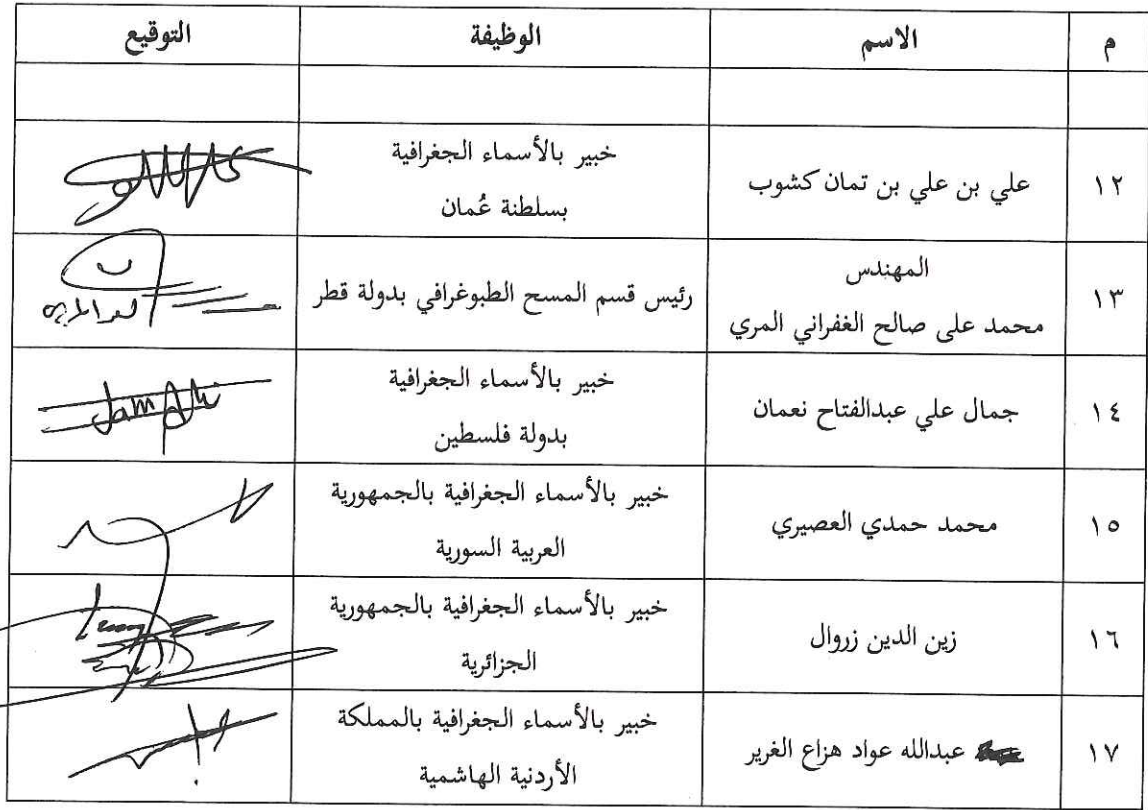 م الاسم الوظيفة التوقيع
١٢ علي بن علي بن تمان كشوب خبير بالأسماء الجغرافية
بسلطنة عُمان
١٣ المهندس
محمد على صالح الغفراني المري رئيس قسم المسح الطبوغرافي بدولة قطر
١٤ جمال علي عبدالفتاح نعمان خبير بالأسماء الجغرافية
بدولة فلسطين
١٥ محمد حمدي العصيري خبير بالأسماء الجغرافية بالجمهورية
العربية السورية
١٦ زين الدين زروال خبير بالأسماء الجغرافية بالجمهورية
الجزائرية
١٧ عبدالله عواد هزاع الغرير خبير بالأسماء الجغرافية بالمملكة
الأردنية الهاشمية